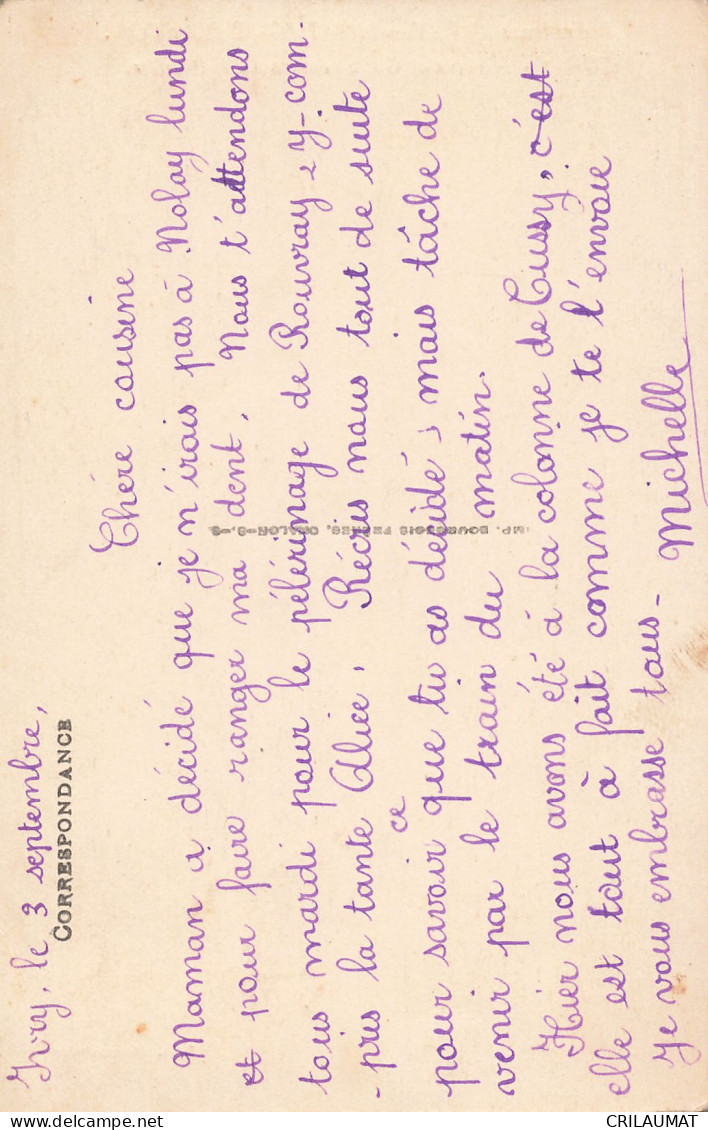 Ivry, le 3 septembre,
CORRESPONDANCE
Chère cousine
Maman a décidé que je n'irais pas à Nolay lundi
et pour faire ranger ma dent. Nous t'attendons
tous mardi pour le pélérinage de Rouvray, y-com-
-pris la tante Alice. Récris nous tout de suite
ce
pour savoir que tu as décidé; mais tâche de
venir par le train du matin.
Hier nous avons été à la colonne de Cussy, c'est
elle est tout à fait comme je te l'envoie
Je vous embrasse tous- Michelle
IMP. BOURGEOIS FRÈRES, CHALON-S-S
CRILAUMAT